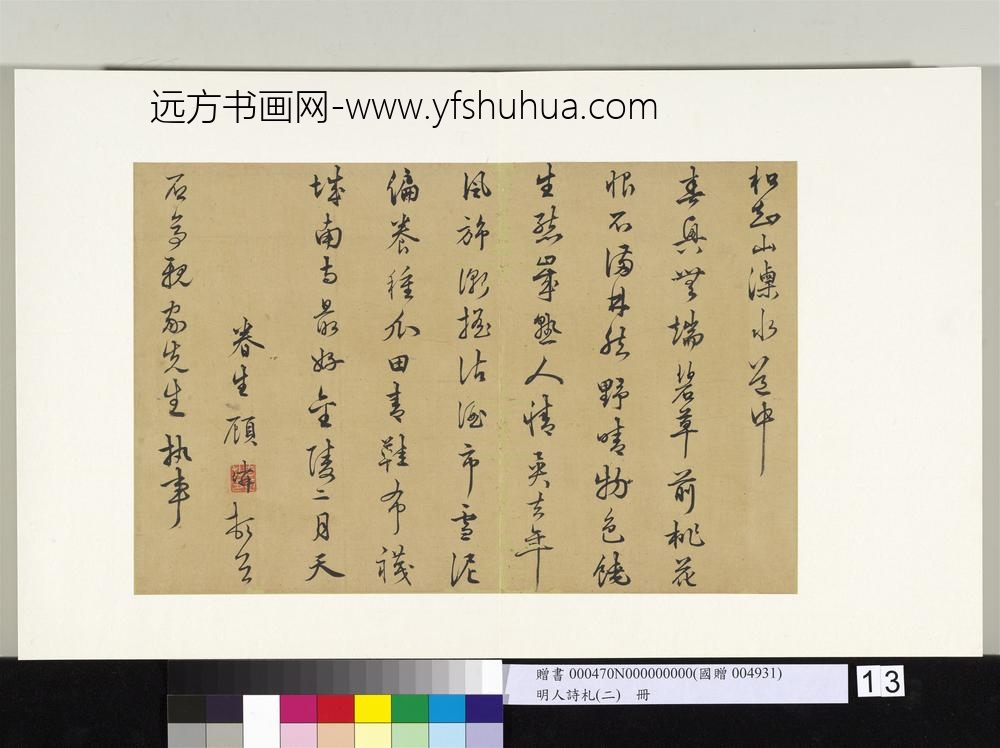 远方书画网-www.yfshuhua.com
和 山溧水道中
春興無端碧草前桃花
恨不満林然野晴物色饒
生態 熟人情異去年
風旆漸摇沽酒市雪泥
偏養種瓜田青鞋布襪
城南寺最好金陵二月天
眷生顧 頓首
石亭親家先生執事
贈書 000470N000000000(國贈 004931)
明人詩札(二) 冊
13